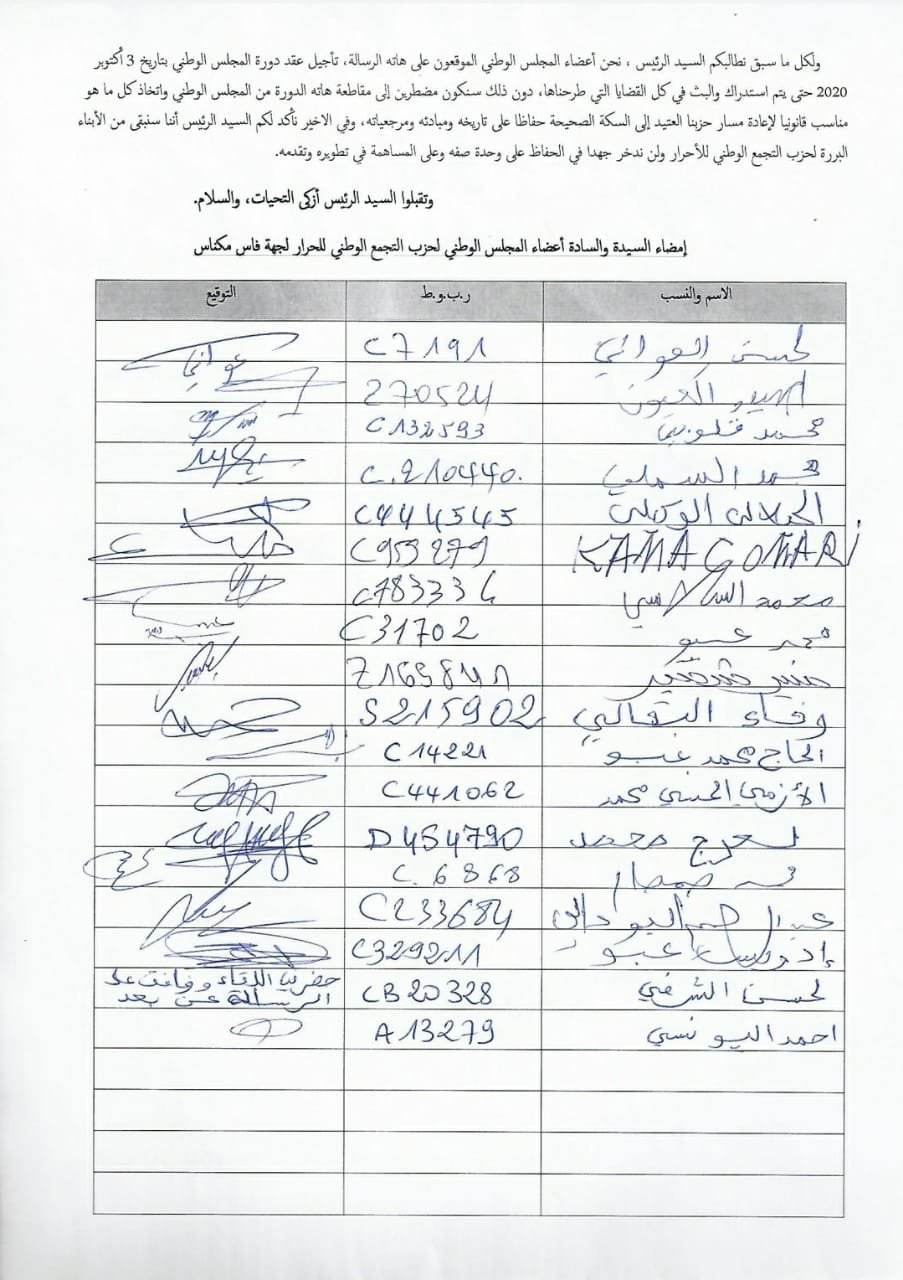 ولكل ما سبق نطالبكم السيد الرئيس ، نحن أعضاء المجلس الوطني الموقعون على هاته الرسالة، تأجيل عقد دورة المجلس الوطني بتاريخ 3 أكتوبر
2020 حتى يتم استدراك والبث في كل القضايا التي طرحناها، دون ذلك سنكون مضطرين إلى مقاطعة هاته الدورة من المجلس الوطني واتخاذ كل ما هو
مناسب قانونيا لإعادة مسار حزبنا العتيد إلى السكة الصحيحة حفاظا على تاريخه ومبادئه ومرجعياته، وفي الاخير نأكد لكم السيد الرئيس أننا سنبقى من الأبناء
البررة لحزب التجمع الوطني للأحرار ولن ندخر جهدا في الحفاظ على وحدة صفه وعلى المساهمة في تطويره وتقدمه.
وتقبلوا السيد الرئيس أزكى التحيات، والسلام.
إمضاء السيدة والسادة أعضاء المجلس الوطني لحزب التجمع الوطني للحرار لجهة فاس مكناس
الاسم والنسب ر.ب.و.ط التوقيع
لحسن العواني C7191
270524
محمد C132593
محمد السملي C.210440.
الجيلالي الوكيلي C444545
KAMA GOMARI C959279
محمد السلاسي
محمد عبو C31702
منير
وفاء البقالي S215902
الحاج محمد عبو C14221
الأزمي الحسني محمد C441062
لعرج محمد D454790
C.6868
C233684
إدريس عبو C329211
لحسن الشرفي CB20328 حضر بنا اللقاء ووافق على
الرسالة عن بعد
احمد اليونسي A13279